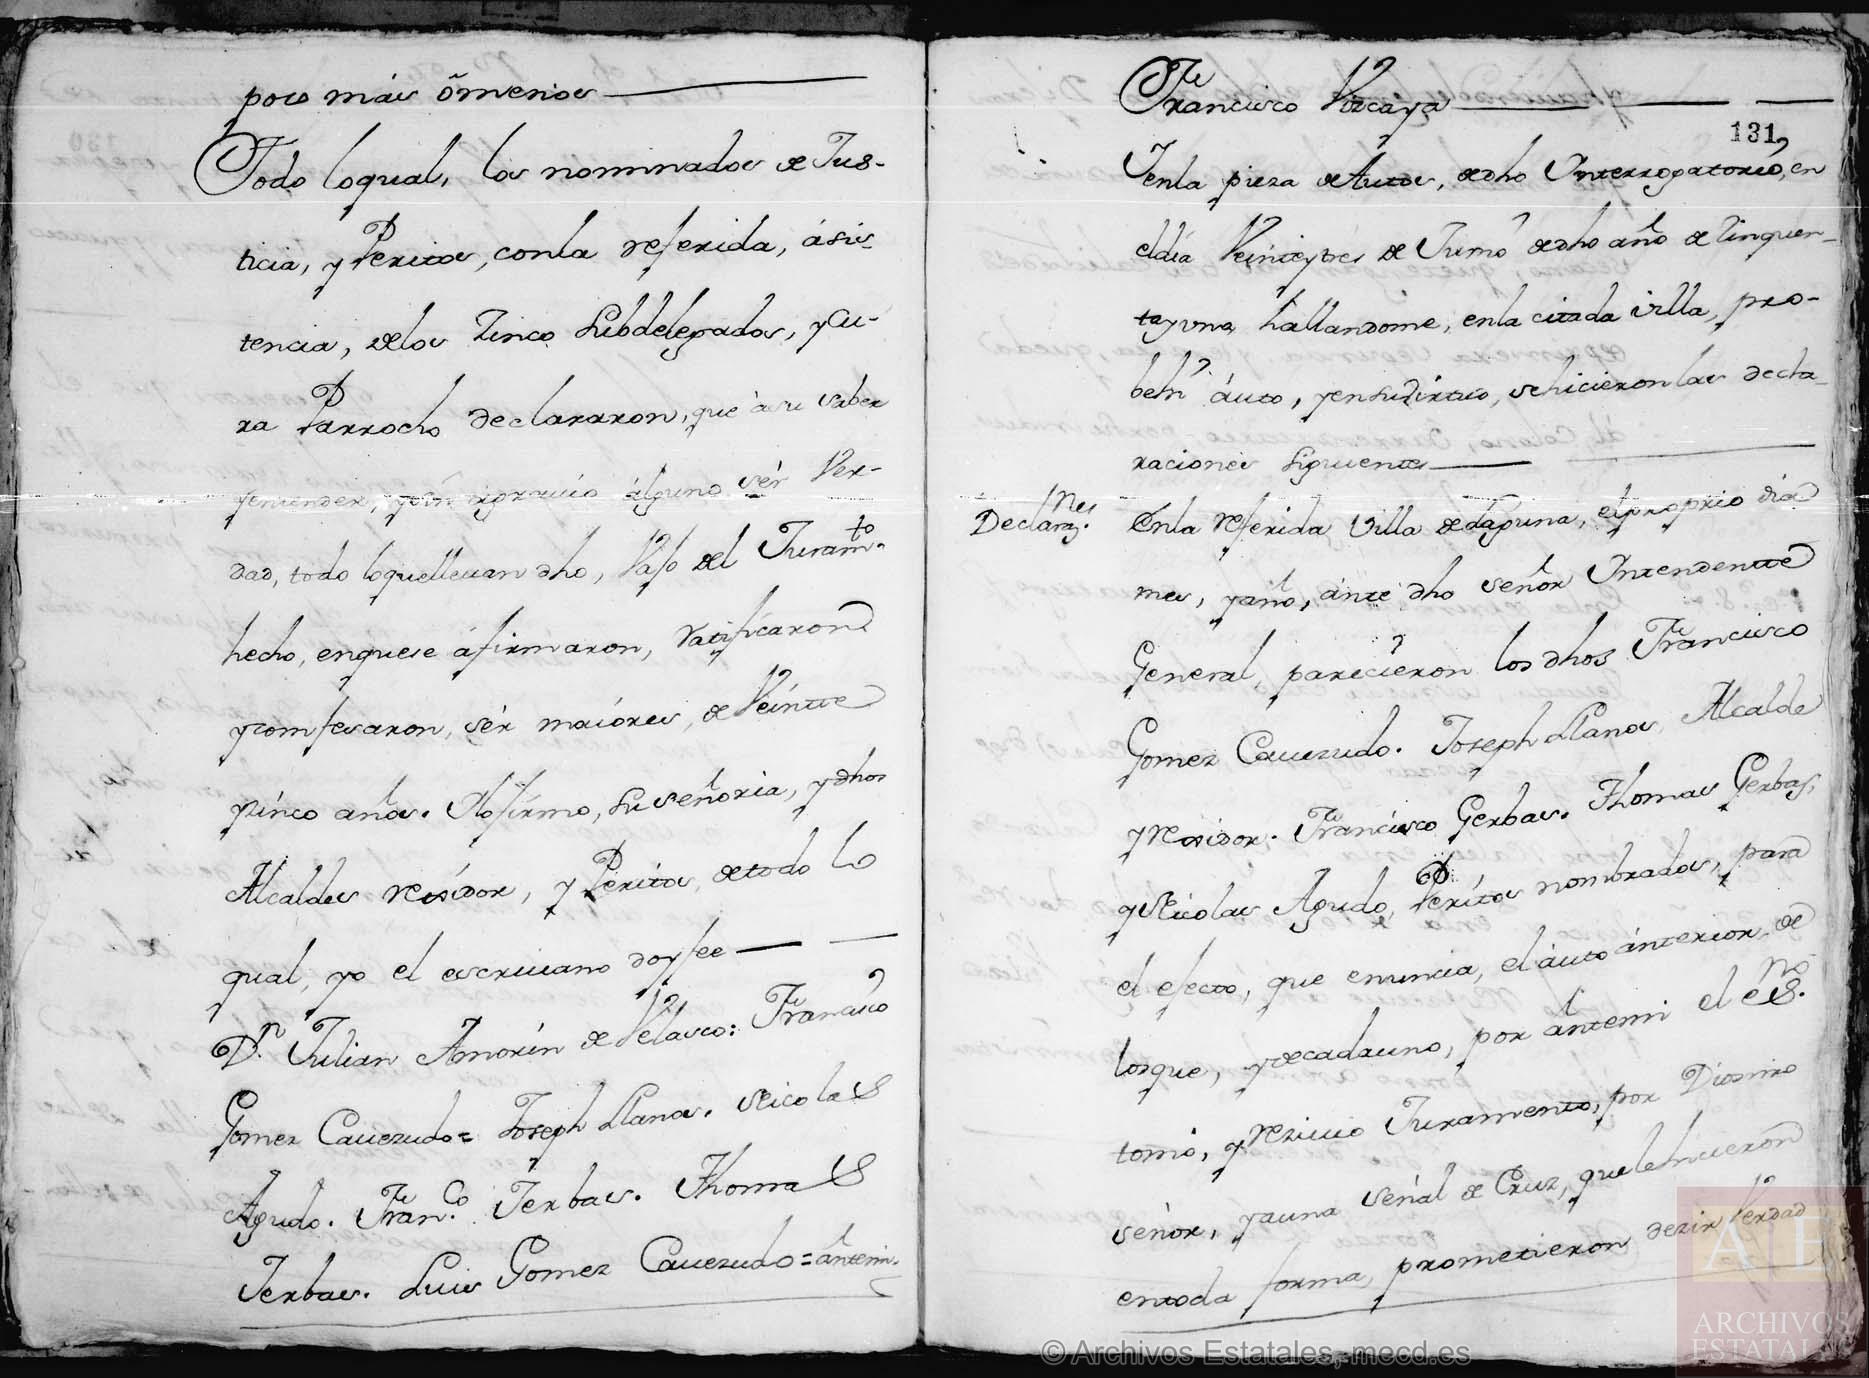 poco más ómenos
Todo loqual, los nominados de Jus-
ticia, y Peritos, conla referida, ásis-
tencia, delos Zinco Subdelegados, y Cu-
ra Parrocho declararon, que ásu saber
yentender, ysin agravio álguno sér Ver-
dad, todo loquellevan dho, Vajo del Juramto.
hecho, enquese áfirmaron, ratificaron
yconfesaron, sér maióres, de Veínte
yzínco años. Ylofírmo, su señoria, y dhos
Alcaldes rexidor, y Peritos, detodo lo
qual, yo el escrivano doyfee
Dn. Julian Amorín de Velasco: Francisco
Gomez Cavezudo= Joseph Llanos. Nicolas
Agudo. Franco. Jerbas. Thomas
Jerbas. Luis Gomez Cavezudo= ántemi.
Francisco Vizcaya
131
Yenla pieza de Autos, dedho Ynterrogatorio, en
eldía Veinteytrés de Junio dedho año de Zinquen-
tayuno, hallandome, enla citada villa, pro-
behi áuto, yensuvirtud, sehicieron las decla-
raciones siguientes
Declaraznes.
Enla referida Villa delaguna, elproprio dia
mes, yaño, ánte dho señor Yntendente
General, pareciéron los dhos Francisco
Gomez Cavezudo. Joseph Llanos, Alcalde
yrexidor. Francisco Gerbas. Thomas Gerbas,
yNicolas Agudo, Peritos nombrados, para
el efecto, que enuncia, el áuto ánterior, de
losque, ydecadauno, por ántemi el esno.
tomó, yrezivio Juramento, por Diosnro
señor, yauna señal de Cruz, quelehicieron
entoda forma, prometieron dezir Verdad
© Archivos Estatales, mecd.es
AE
ARCHIVOS
ESTATALES